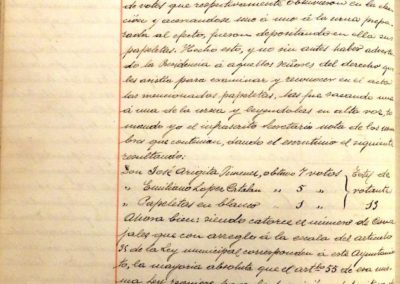 de votos que respectivamente obtuvieron en la elec-
ción y acercandose uno á uno á la urna prepa-
rada al efecto, fueron depositando en ella sus
papeletas. Hecho esto, y no sin antes haber adverti
do la Presidencia á aquellos señores del derecho que
les asistia para examinar y reconocer en el acto
las mencionadas papeletas, las fue sacando una
á una de la urna y leyendolas en alta voz, to-
mando yo el infrascrito Secretario nota de los nom
bres que contenian, dando el escrutinio el siguiente
resultando:
Don José Arigita Jimenez, obtuvo 7 votos
" Emiliano Lopez Catalan " 5 " votantes
" Papeletas en blanco " 1 " 13
Ahora bien: siendo catorce el número de Conce
jales que con arreglo á la escala del articulo
35 de la Ley municipal corresponden á este Ayuntamien
to, la mayoria absoluta que el artº 55 de esa mis
ma Ley